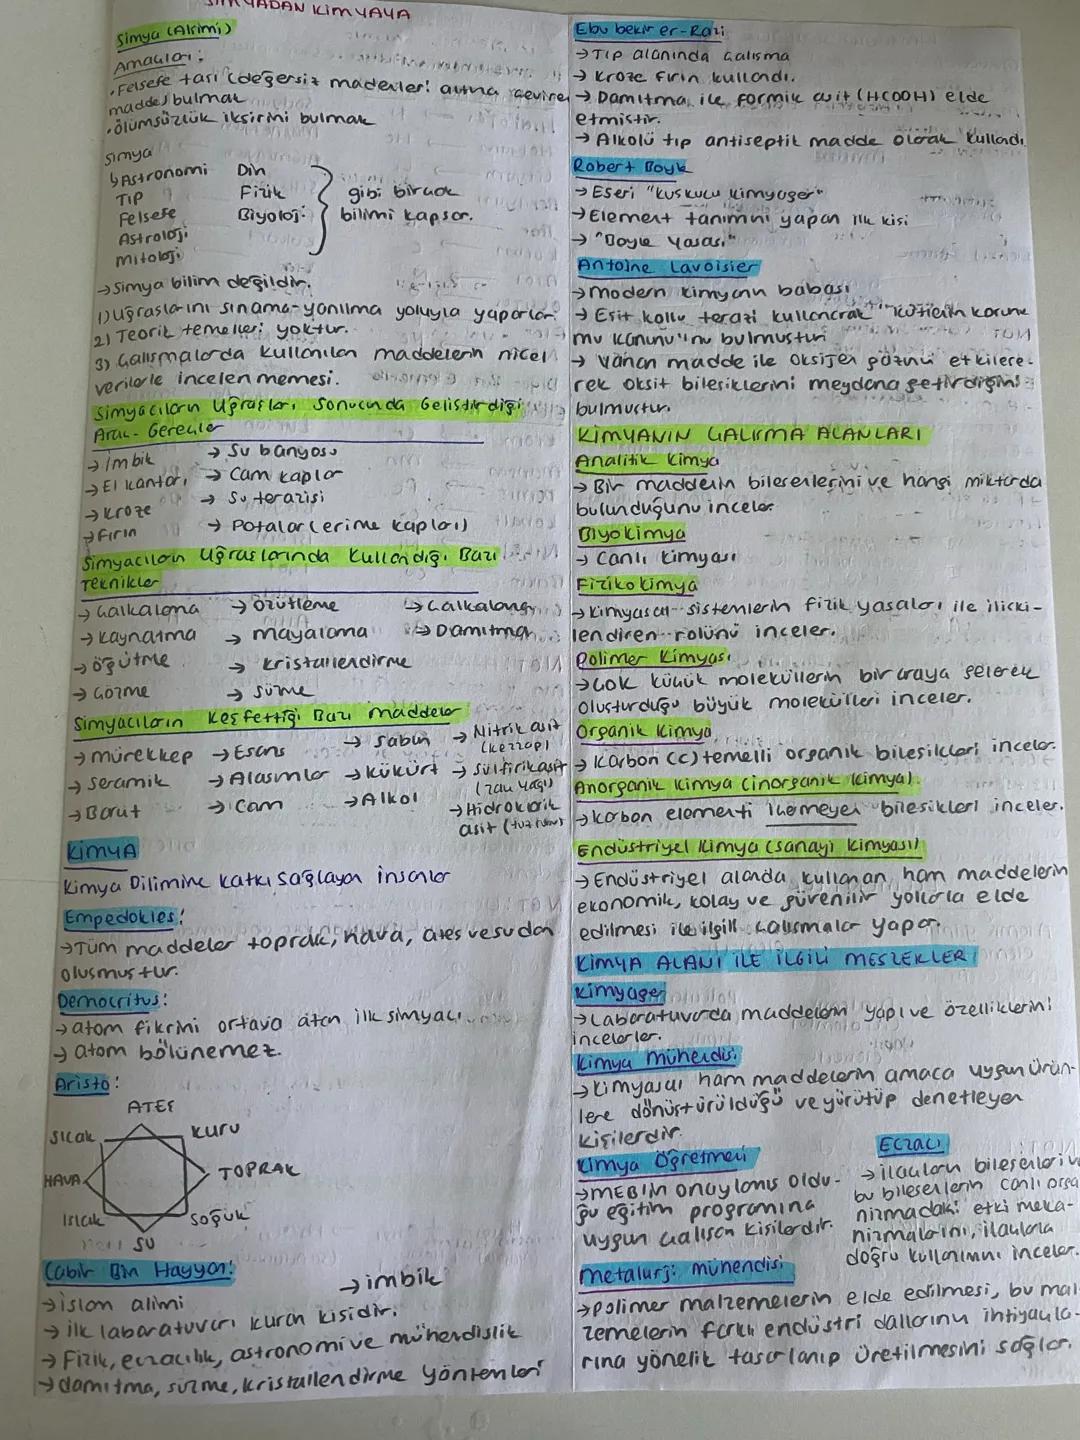 SİMYADAN KİMYAYA
Simya (Alşimi)
Amaçları:
• Felsefe taşı (değersiz madenleri altına çeviren
madde) bulmak
• ölümsüzlük iksirini bulmak
Simya
↳ Astronomi Din
Tıp Fizik gibi birçok
Felsefe Biyoloji bilimi kapsar.
Astroloji
Mitoloji
→ Simya bilim değildir.
1) Uğraşlarını sınama-yanılma yoluyla yaparlar.
2) Teorik temelleri yoktur.
3) Çalışmalarda kullanılan maddelerin nicel
verilerle incelenmemesi.
Simyacıların Uğraşları Sonucunda Geliştirdiği
Araç - Gereçler
→ imbik → Su banyosu
→ El kantarı → Cam kaplar
→ kroze → Su terazisi
→ Fırın → Potalar (erime kapları)
Simyacıların Uğraşlarında Kullandığı Bazı
Teknikler
→ Çalkalama → özütleme → Çalkalama
→ kaynatma → mayalama → Damıtma
→ öğütme → kristallendirme
→ Çözme → süzme
Simyacıların Keşfettiği Bazı maddeler
→ mürekkep → Esans → sabun → Nitrik asit (kezzap)
→ seramik → Alaşımlar → kükürt → sülfirikasit (zaç yağı)
→ Barut → Cam → Alkol → Hidroklorik asit (tuz ruhu)
KİMYA
Kimya Dilimine katkı sağlayan insanlar
Empedokles:
→ Tüm maddeler toprak, hava, ateş ve sudan
oluşmuştur.
Democritus:
→ atom fikrini ortaya atan ilk simyacı
→ atom bölünemez.
Aristo:
ATEŞ
sıcak kuru
HAVA TOPRAK
Islak Soğuk
SU
Cabir Bin Hayyan: → imbik
→ islam alimi
→ ilk laboratuvarı kuran kişidir.
→ Fizik, eczacılık, astronomi ve mühendislik
→ damıtma, süzme, kristallendirme yöntemleri
Ebu bekir er-Razi
→ Tıp alanında çalışma
→ kroze fırın kullandı.
→ Damıtma ile formik asit (HCOOH) elde
etmiştir.
→ Alkolü tıp antiseptik madde olarak kullandı
Robert Boyle
→ Eseri "kuşkucu kimyager"
→ Element tanımını yapan ilk kişi
→ "Boyle Yasası"
Antoine Lavoisier
→ modern kimyanın babası
→ Eşit kollu terazi kullanarak "kütlenin korunu
mu kanunu"nu bulmuştur
→ Yanan madde ile oksijen gazını etkilere-
rek oksit bileşiklerini meydana getirdiğini
bulmuştur.
KİMYANIN ÇALIŞMA ALANLARI
Analitik kimya
→ Bir maddenin bileşenlerini ve hangi miktarda
bulunduğunu inceler
Biyokimya
→ Canlı kimyası
Fizikokimya
→ kimyasal sistemlerin fizik yasaları ile ilişki-
lendiren rolünü inceler.
Polimer Kimyası
→ Çok küçük moleküllerin bir araya gelerek
oluşturduğu büyük molekülleri inceler.
Organik Kimya
→ Karbon (C) temelli organik bileşikleri inceler.
Anorganik kimya (inorganik kimya)
→ karbon elementi içermeyen bileşikleri inceler.
Endüstriyel Kimya (sanayi kimyası)
→ Endüstriyel alanda kullanan ham maddelerin
ekonomik, kolay ve güvenilir yollarla elde
edilmesi ile ilgili çalışmalar yapar.
KİMYA ALANI İLE İLGİLİ MESLEKLER
Kimyager
→ Laboratuvarda maddelerin yapı ve özelliklerini
incelerler.
Kimya mühendisi
→ Kimyasal ham maddelerin amaca uygun ürün-
lere dönüştürüldüğü ve yürütüp denetleyen
kişilerdir.
Kimya Öğretmeni
→ MEBİN onaylamış oldu-
ğu eğitim programına
uygun çalışan kişilerdir.
Eczacı
→ ilaçların bileşenleri ve
bu bileşenlerin canlı orga
nizmadaki etki meka-
nizmalarını, ilaçlara
doğru kullanımını inceler.
Metalurji mühendisi
→ polimer malzemelerin elde edilmesi, bu mal
zemelerin farklı endüstri dallarını ihtiyaçla-
rına yönelik tasarlanıp üretilmesini sağlar.